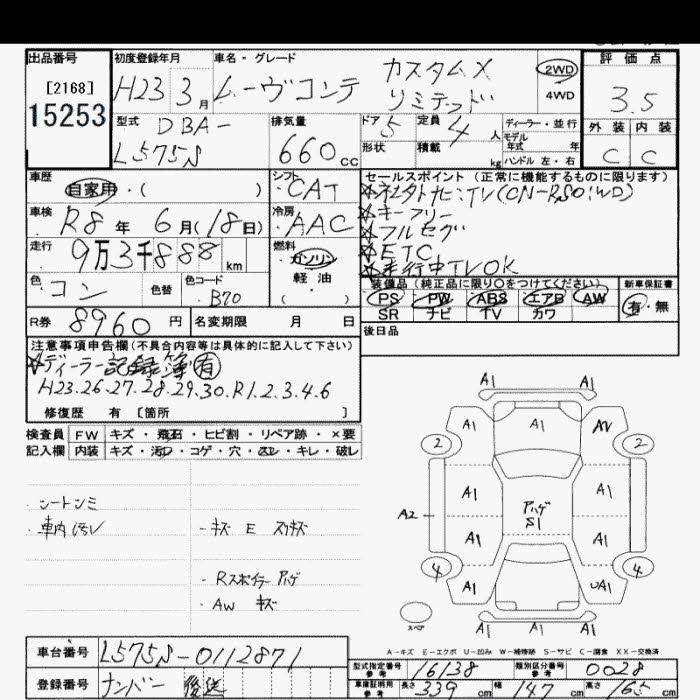 出品番号 初度登録年月 車名・グレード 評価点
[2168] H23 3月 ムーヴコンテ カスタムX 2WD
15253 リミテッド 4WD 3.5
型式 DBA- 排気量 ドア 5 定員 4人 ディーラー・並行 外装 内装
L575S 660cc 形状 積載 kg モデル年式 年 C C
ハンドル 左・右
車歴 シフト セールスポイント (正常に機能するものに限ります)
自家用・( ) CAT
車検 R8年 6月(18日) 冷房 AAC ☆キーフリー
☆フルセグ
走行 9万3千888km 燃料 ガソリン ☆ETC
軽油 ☆走行中TVOK
色 コン 色替 色コード B70 ( ) 装備品(純正品に限り○をつけてください) 新車保証書
PS PW ABS エアB AW 有・無
R券 8960円 名変期限 月 日 SR ナビ TV カワ
後日品
注意事項申告欄(不具合内容等は具体的に記入して下さい)
☆ディーラー記録簿有
H23.26.27.28.29.30.R1.2.3.4.6
修復歴 有 [箇所 ]
検査員 FW キズ・飛石・ヒビ割・リペア跡・×要
記入欄 内装 キズ・汚れ・コゲ・穴・スレ・キレ・破レ
A1 A1
A1 A1 AV
2 2
・シートシミ
・車内汚レ
・キズ E スリキズ
A1 アハゲ A1
A2 S1
A1 A1
・Rスポイラー アハゲ
・AW キズ
4 4
A1 UA1
スペア
A1 A1 A1
A-キズ E-エクボ U-凹み W-補修跡 S-サビ C-腐食 XX-交換済
車台番号 L575S-0112871
型式指定番号 参考 16138 類別区分番号 参考 0028
登録番号 ナンバー後送
車庫証明用 参考 長さ 339cm 幅 147cm 高さ 165cm